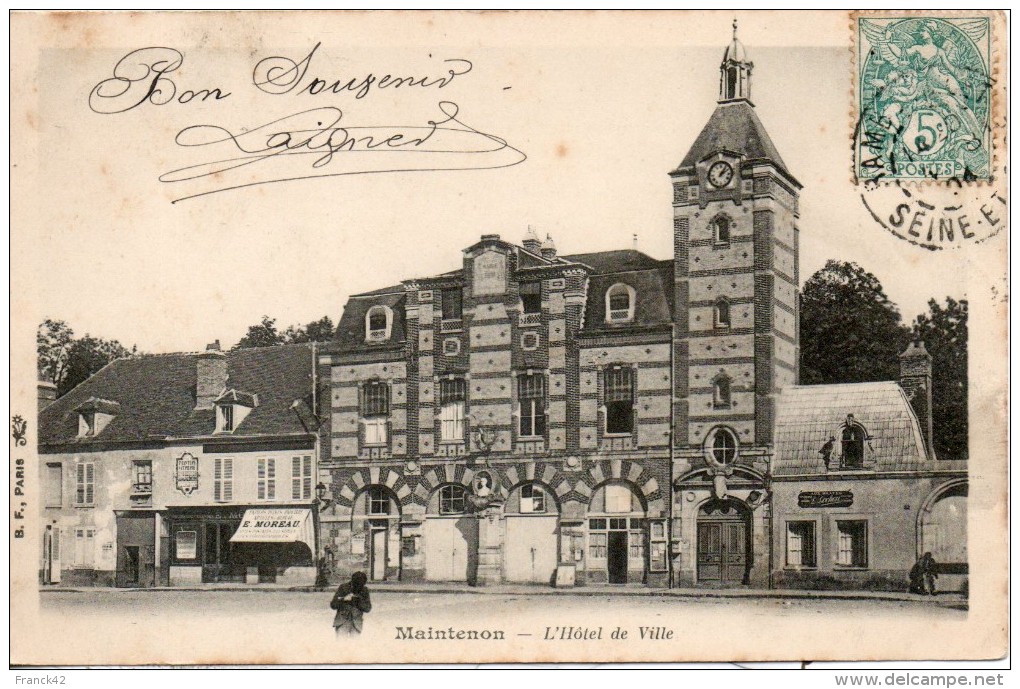 Bon Souvenir
Laigner
5c
POSTES
SEINE-ET
E. MOREAU
B. F., PARIS
Maintenon — L'Hôtel de Ville
Franck42
www.delcampe.net